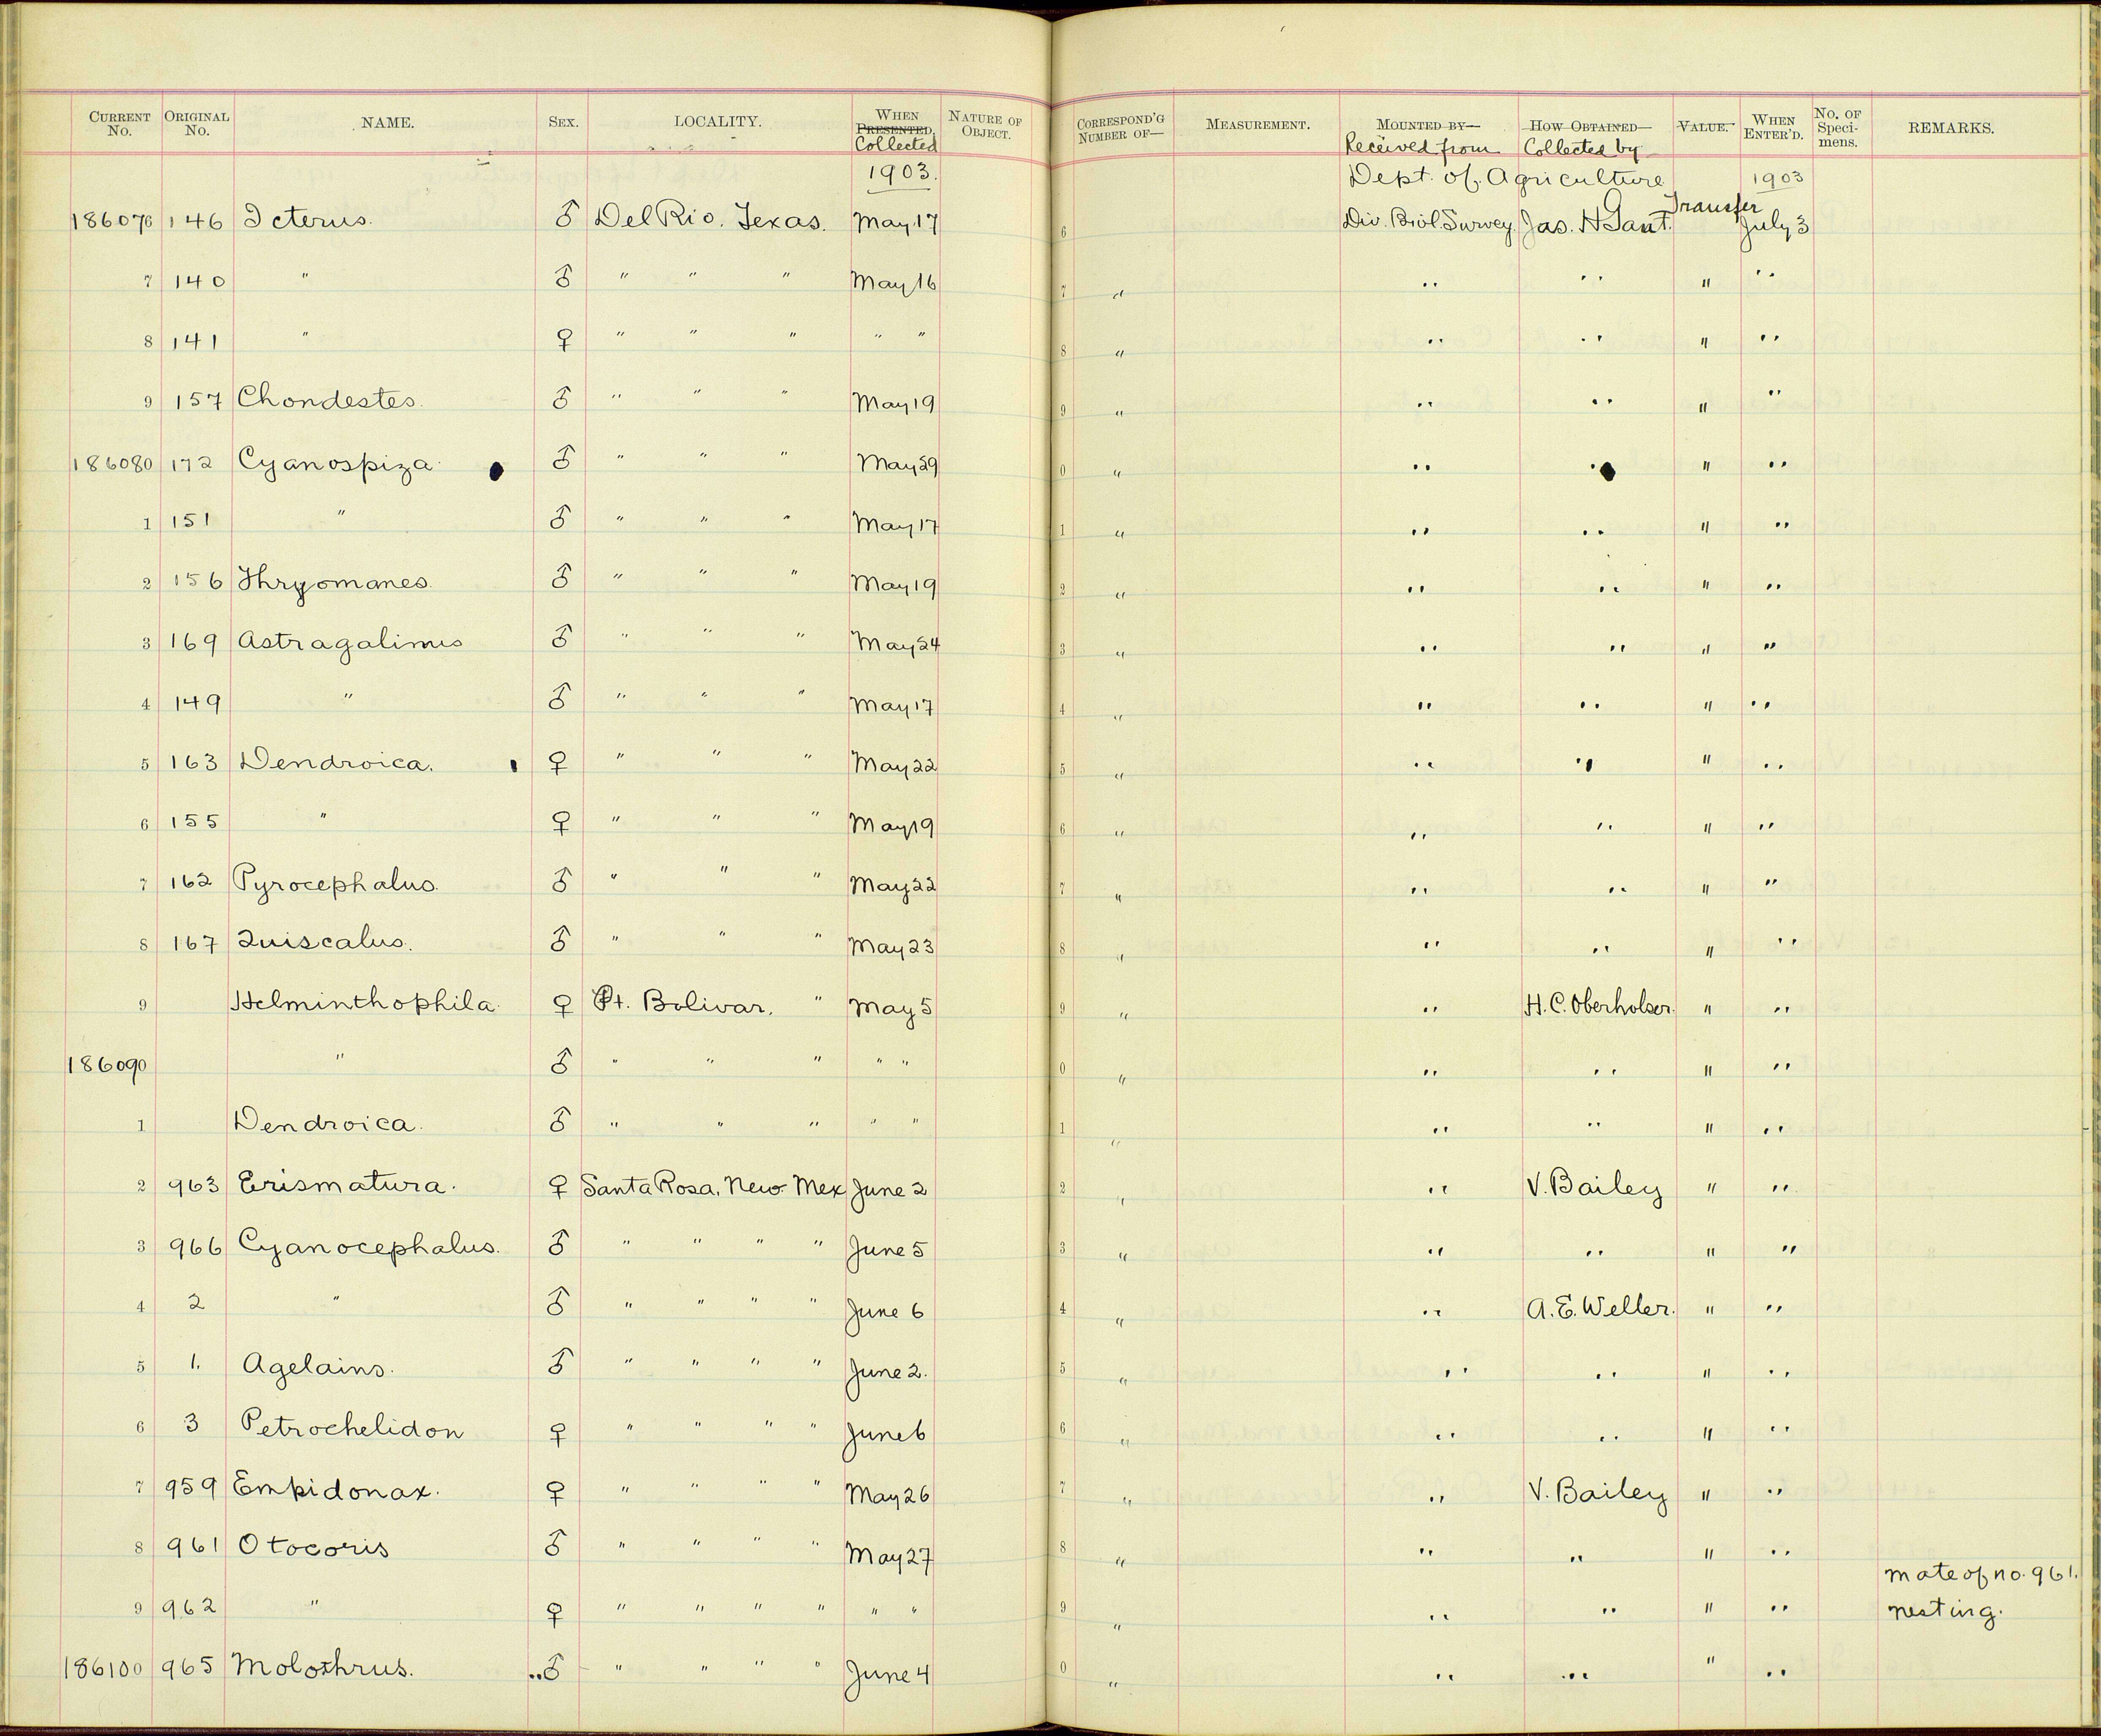 CURRENT No. ORIGINAL No. NAME. SEX. LOCALITY. WHEN PRESENTED, Collected NATURE OF OBJECT. CORRESPOND'G NUMBER OF— MEASUREMENT. MOUNTED BY— Received from HOW OBTAINED— Collected by VALUE. WHEN ENTER'D. No. OF Speci-mens. REMARKS.
1903. Dept. of Agriculture 1903
186076 146 Icterus. ♂ Del Rio. Texas. May 17 6 Div. Biol. Survey. Jas. H Gaut. Transfer July 3
7 140 " ♂ " " " May 16 7 " " " " "
8 141 " ♀ " " " " " 8 " " " " "
9 157 Chondestes. ♂ " " " May 19 9 " " " " "
186080 172 Cyanospiza. ♂ " " " May 29 0 " " " " "
1 151 " ♂ " " " May 17 1 " " " " "
2 156 Thryomanes. ♂ " " " May 19 2 " " " " "
3 169 Astragalinus ♂ " " " May 24 3 " " " " "
4 149 " ♂ " " " May 17 4 " " " " "
5 163 Dendroica. ♀ " " " May 22 5 " " " " "
6 155 " ♀ " " " May 19 6 " " " " "
7 162 Pyrocephalus. ♂ " " " May 22 7 " " " " "
8 167 Quiscalus. ♂ " " " May 23 8 " " " " "
9 Helminthophila. ♀ Pt. Bolivar, " May 5 9 " " H. C. Oberholser. " "
186090 " ♂ " " " " " 0 " " " " "
1 Dendroica. ♂ " " " " " 1 " " " " "
2 963 Erismatura. ♀ Santa Rosa, New Mex June 2 2 " " V. Bailey " "
3 966 Cyanocephalus. ♂ " " " " June 5 3 " " " " "
4 2 " ♂ " " " " June 6 4 " " A. E. Weller. " "
5 1. Agelains. ♂ " " " " June 2. 5 " " " " "
6 3 Petrochelidon ♀ " " " " June 6 6 " " " " "
7 959 Empidonax. ♀ " " " " May 26 7 " " V. Bailey " "
8 961 Otocoris ♂ " " " " May 27 8 " " " " "
mate of no. 961.
9 962 " ♀ " " " " " " 9 " " " " " nesting.
186100 965 Molothrus. ♂ " " " " June 4 0 " " " " "